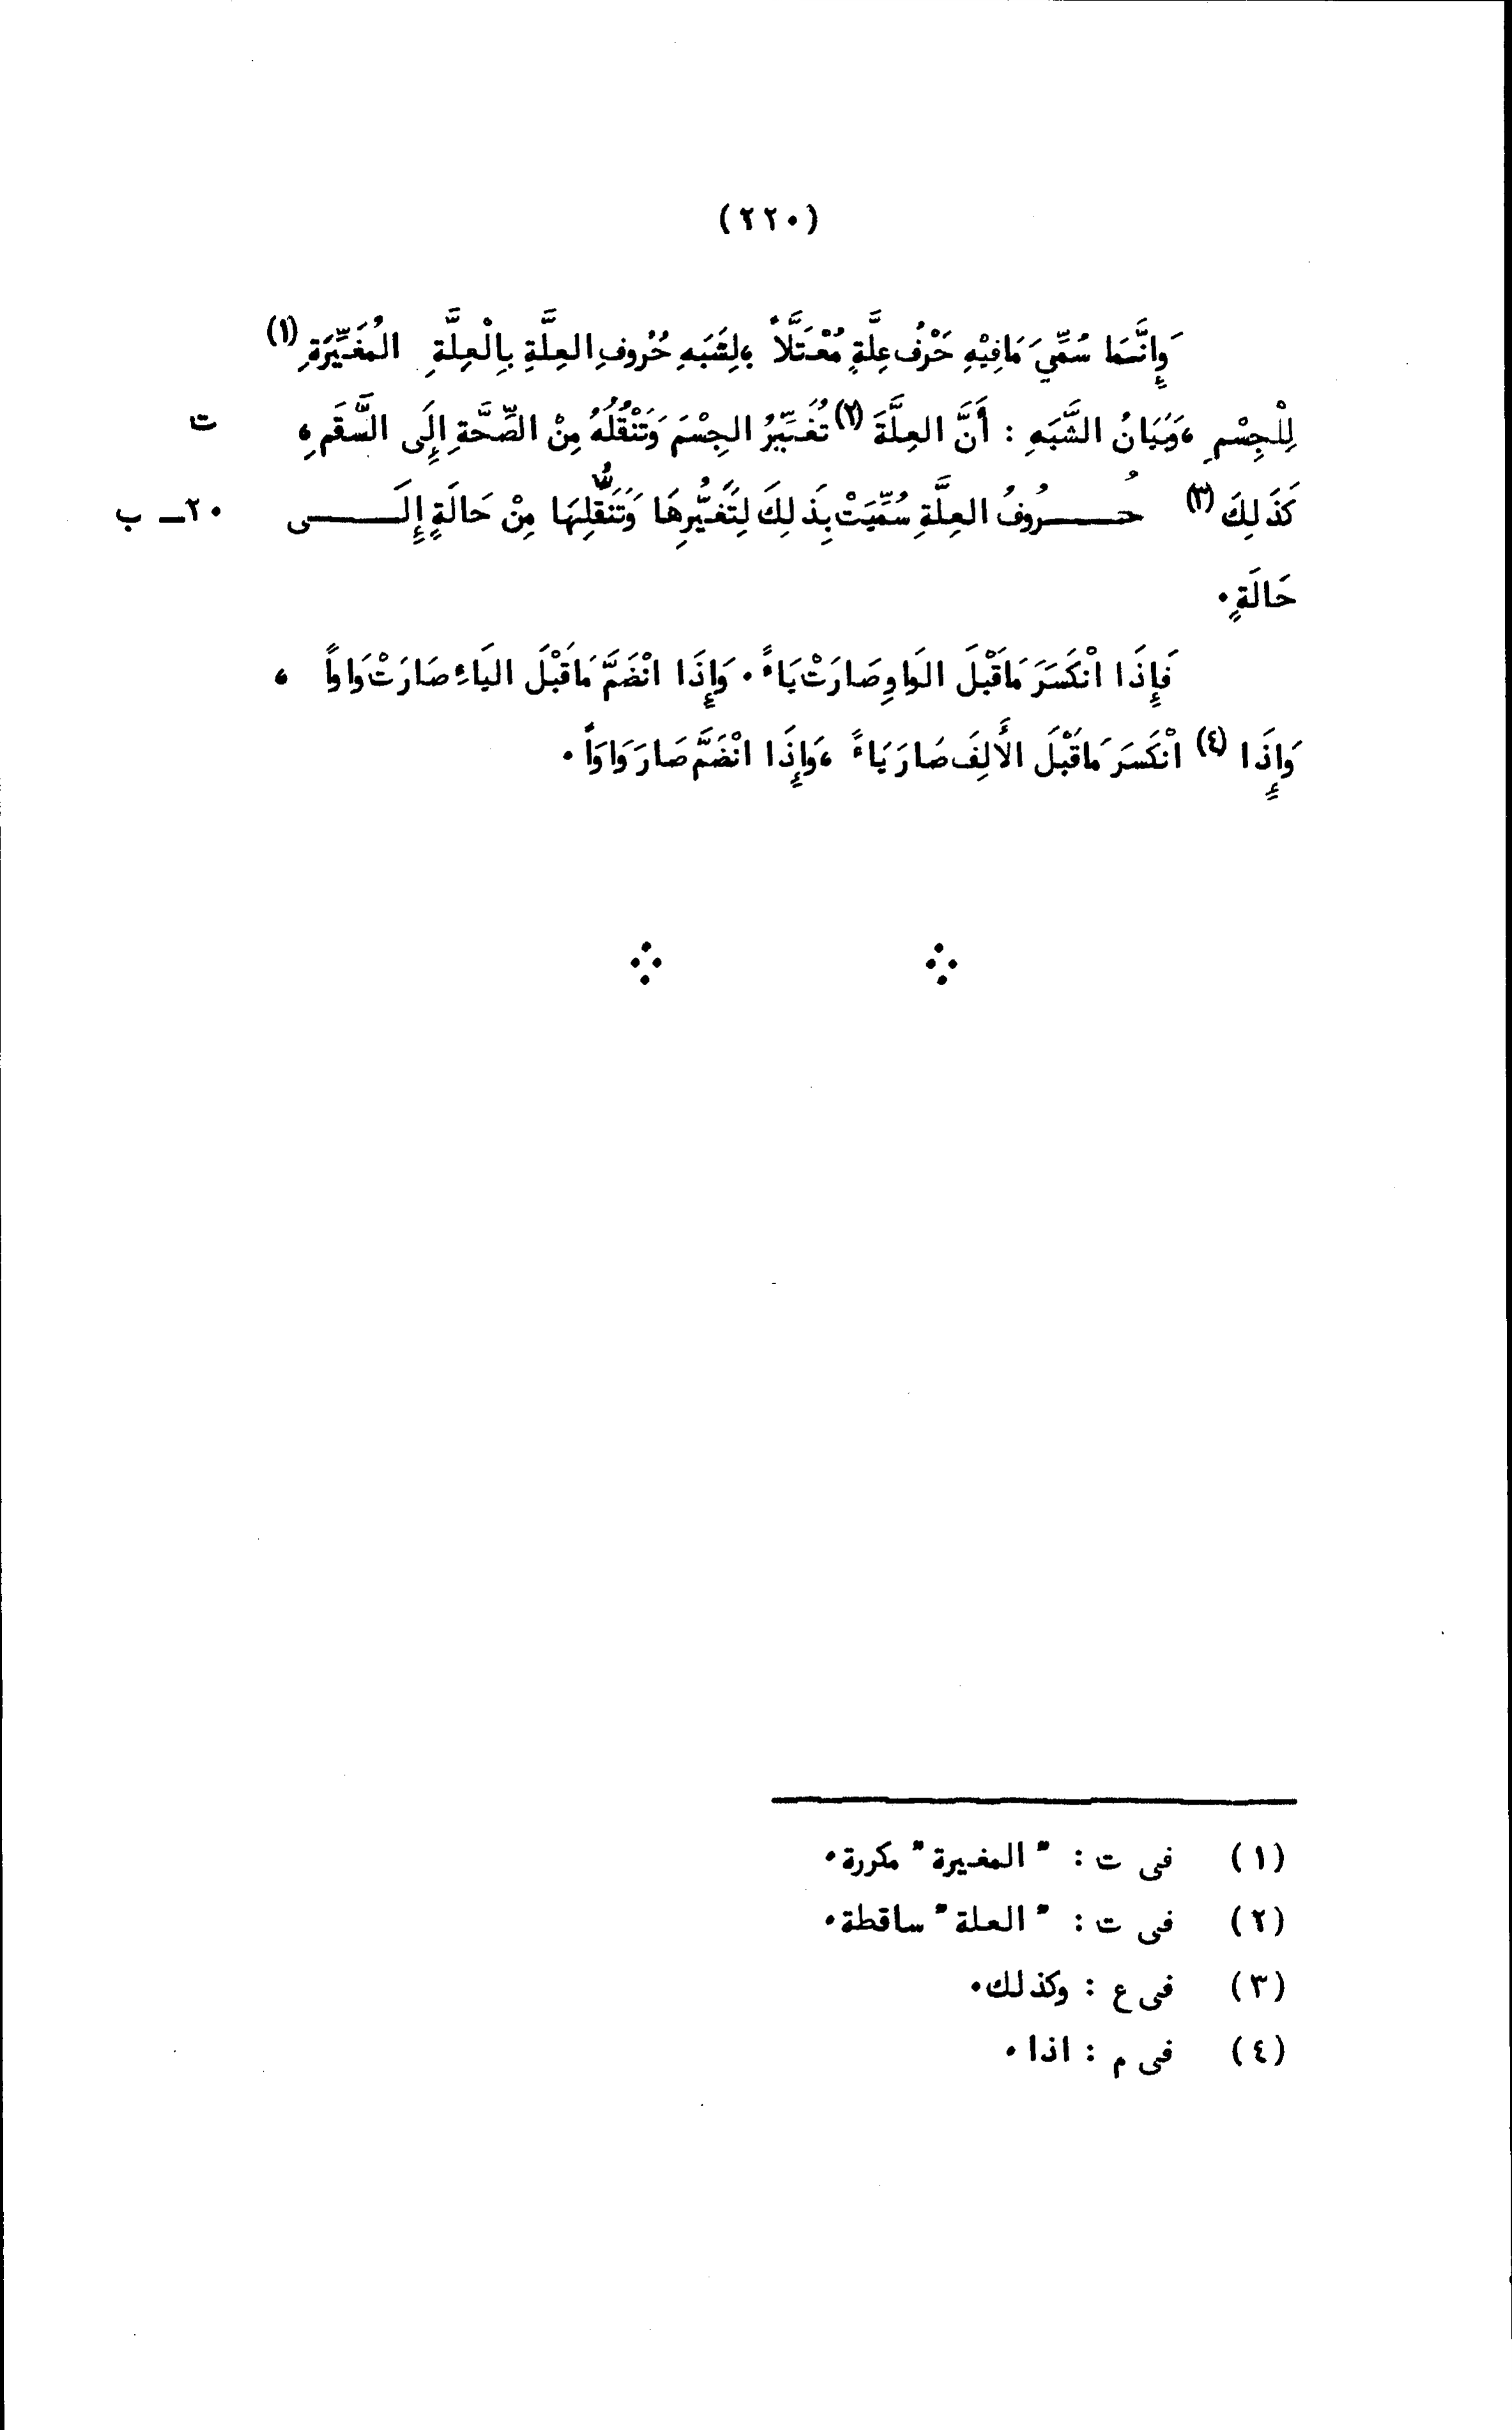 (٢٢٠)
وَإِنَّمَا سُمِّيَ مَافِيْهِ حَرْفُ عِلَّةٍ مُعْتَلَّاً ،لِشَبَهِ حُرُوفِ العِلَّةِ بِالْعِلَّةِ المُغَيِّرَةِ (١)
لِلْجِسْمِ ،وَبَيَانُ الشَّبَهِ : أَنَّ العِلَّةَ (٢) تُغَيِّرُ الجِسْمَ وَتَنْقُلُهُ مِنْ الصِّحَّةِ إِلَى السَّقَمِ، ت
كَذَلِكَ (٣) حُـــرُوفُ العِلَّةِ سُمِّيَتْ بِذَلِكَ لِتَغَيُّرِهَا وَتَنَقُّلِهَا مِنْ حَالَةٍ إِلَـــى ٢٠ــ ب
حَالَةٍ.
فَإِذَا انْكَسَرَ مَاقَبْلَ الوَاوِ صَارَتْ يَاءً. وَإِذَا انْضَمَّ مَاقَبْلَ اليَاءِ صَارَتْ وَاواً ،
وَإِذَا (٤) انْكَسَرَ مَاقَبْلَ الأَلِفَ صَارَ يَاءً ،وَإِذَا انْضَمَّ صَارَ وَاوَاً.
(١) فى ت : " المغيرة " مكررة.
(٢) فى ت : " العلة " ساقطة.
(٣) فى ع : وكذلك.
(٤) فى م : اذا.